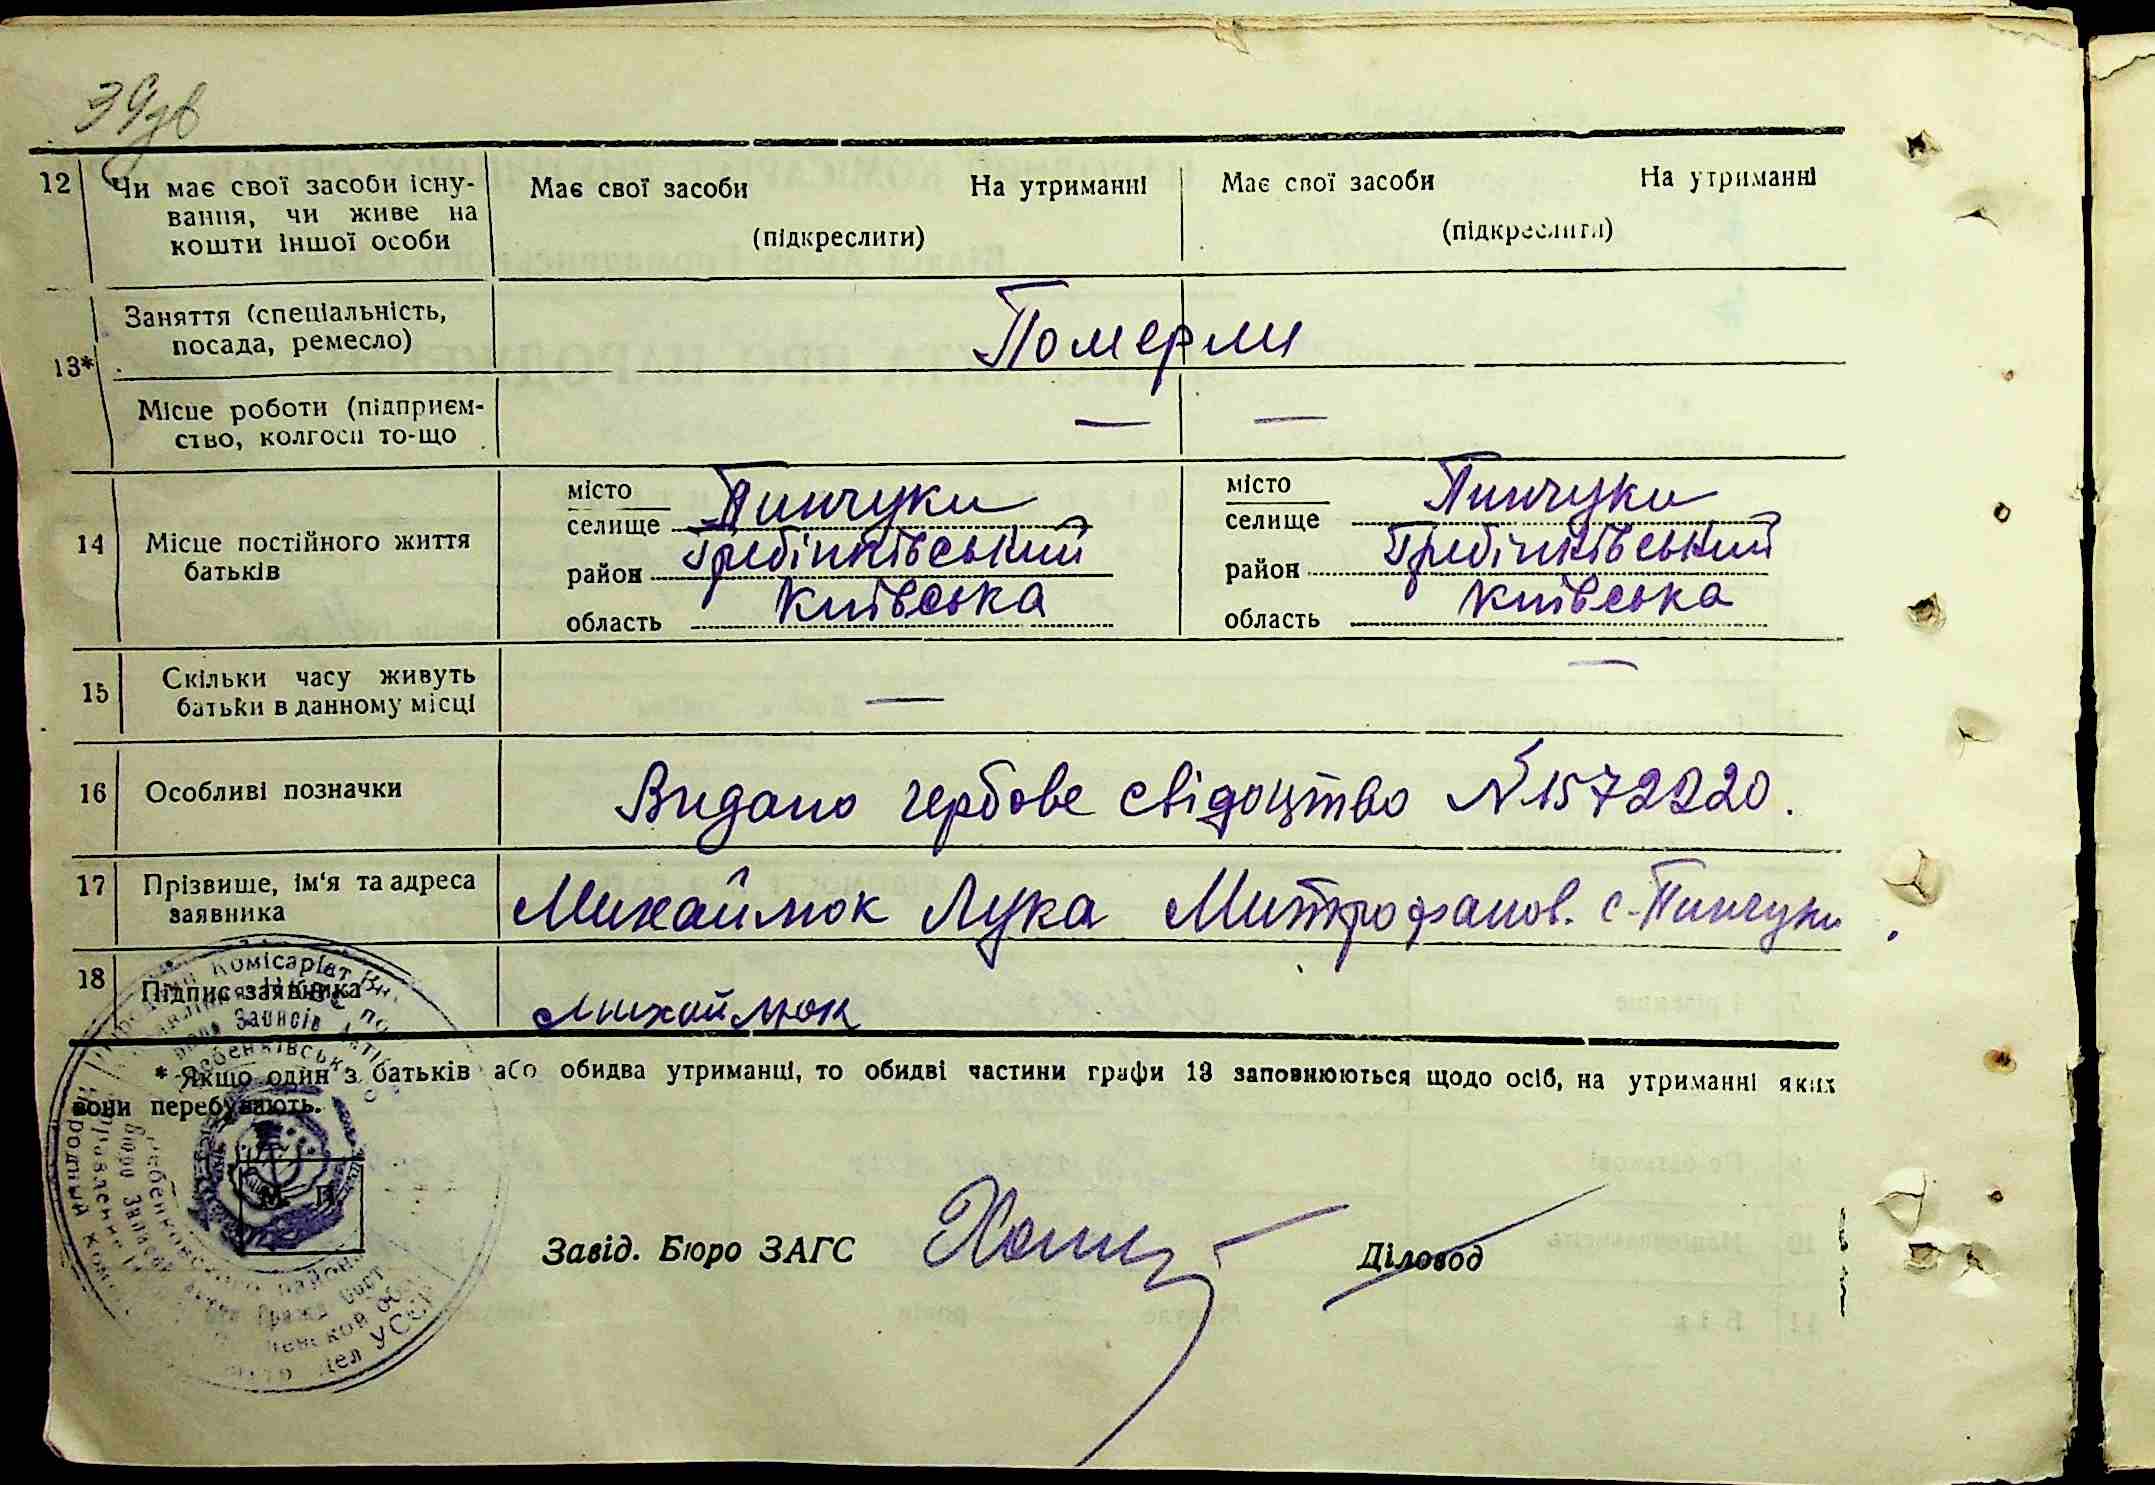 39зв
12 Чи має свої засоби існу-
вання, чи живе на
кошти іншої особи
Має свої засоби На утриманні
(підкреслити)
Має свої засоби На утриманні
(підкреслити)
13*
Заняття (спеціальність,
посада, ремесло)
Померли
Місце роботи (підприєм-
ство, колгосп то-що
— —
14 Місце постійного життя
батьків
місто
селище Пинчуки
район Гребінківський
область Київська
місто
селище Пинчуки
район Гребінківський
область Київська
15 Скільки часу живуть
батьки в данному місці
— —
16 Особливі позначки
Видано гербове свідоцтво № 1572220.
17 Прізвище, ім'я та адреса
заявника
Михайлюк Лука Митрофанов. с-Пинчуки
18 Підпис заявника
Михайлюк
* Якщо один з батьків або обидва утриманці, то обидві частини графи 13 заповнюються щодо осіб, на утриманні яких
вони перебувають.
М П
Завід. Бюро ЗАГС
Діловод